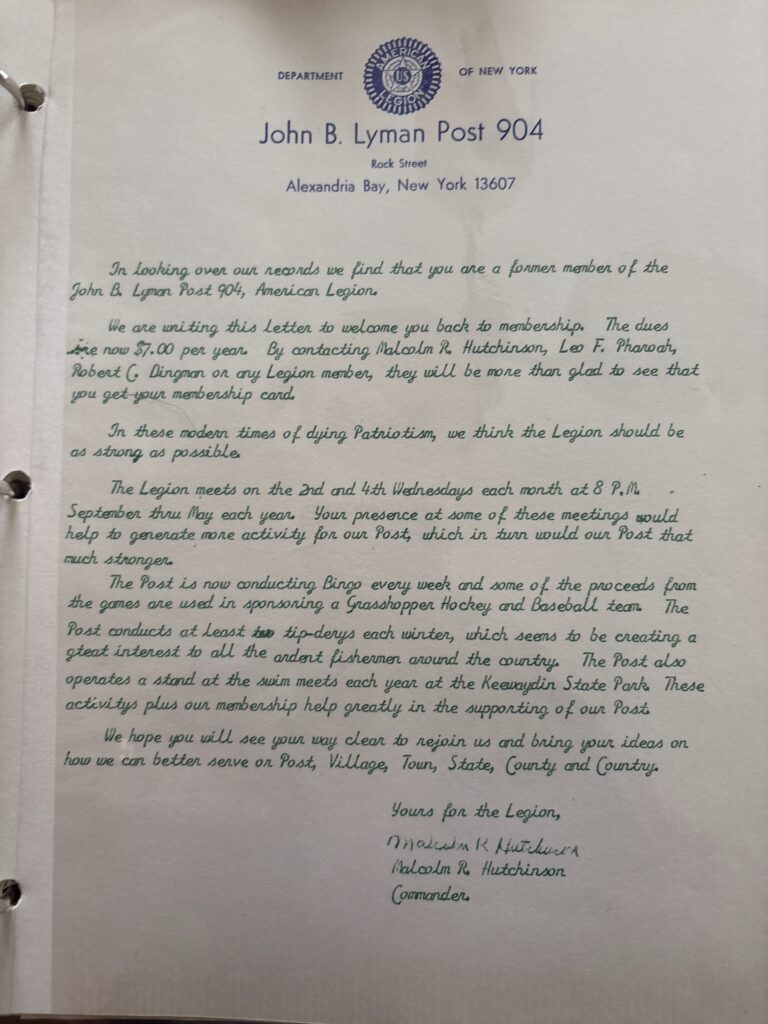 DEPARTMENT OF NEW YORK
AMERICAN
US
LEGION
John B. Lyman Post 904
Rock Street
Alexandria Bay, New York 13607
In looking over our records we find that you are a former member of the
John B. Lyman Post 904, American Legion.
We are writing this letter to welcome you back to membership. The dues
are now $7.00 per year. By contacting Malcolm R. Hutchinson, Leo F. Pharoah,
Robert C. Dingman or any Legion member, they will be more than glad to see that
you get your membership card.
In these modern times of dying Patriotism, we think the Legion should be
as strong as possible.
The Legion meets on the 2nd and 4th Wednesdays each month at 8 P.M.
September thru May each year. Your presence at some of these meetings would
help to generate more activity for our Post, which in turn would our Post that
much stronger.
The Post is now conducting Bingo every week and some of the proceeds from
the games are used in sponsoring a Grasshopper Hockey and Baseball team. The
Post conducts at least two tip-derys each winter, which seems to be creating a
gteat interest to all the ardent fishermen around the country. The Post also
operates a stand at the swim meets each year at the Keewaydin State Park. These
activitys plus our membership help greatly in the supporting of our Post.
We hope you will see your way clear to rejoin us and bring your ideas on
how we can better serve or Post, Village, Town, State, County and Country.
Yours for the Legion,
Malcolm R Hutchinson
Malcolm R. Hutchinson
Commander.